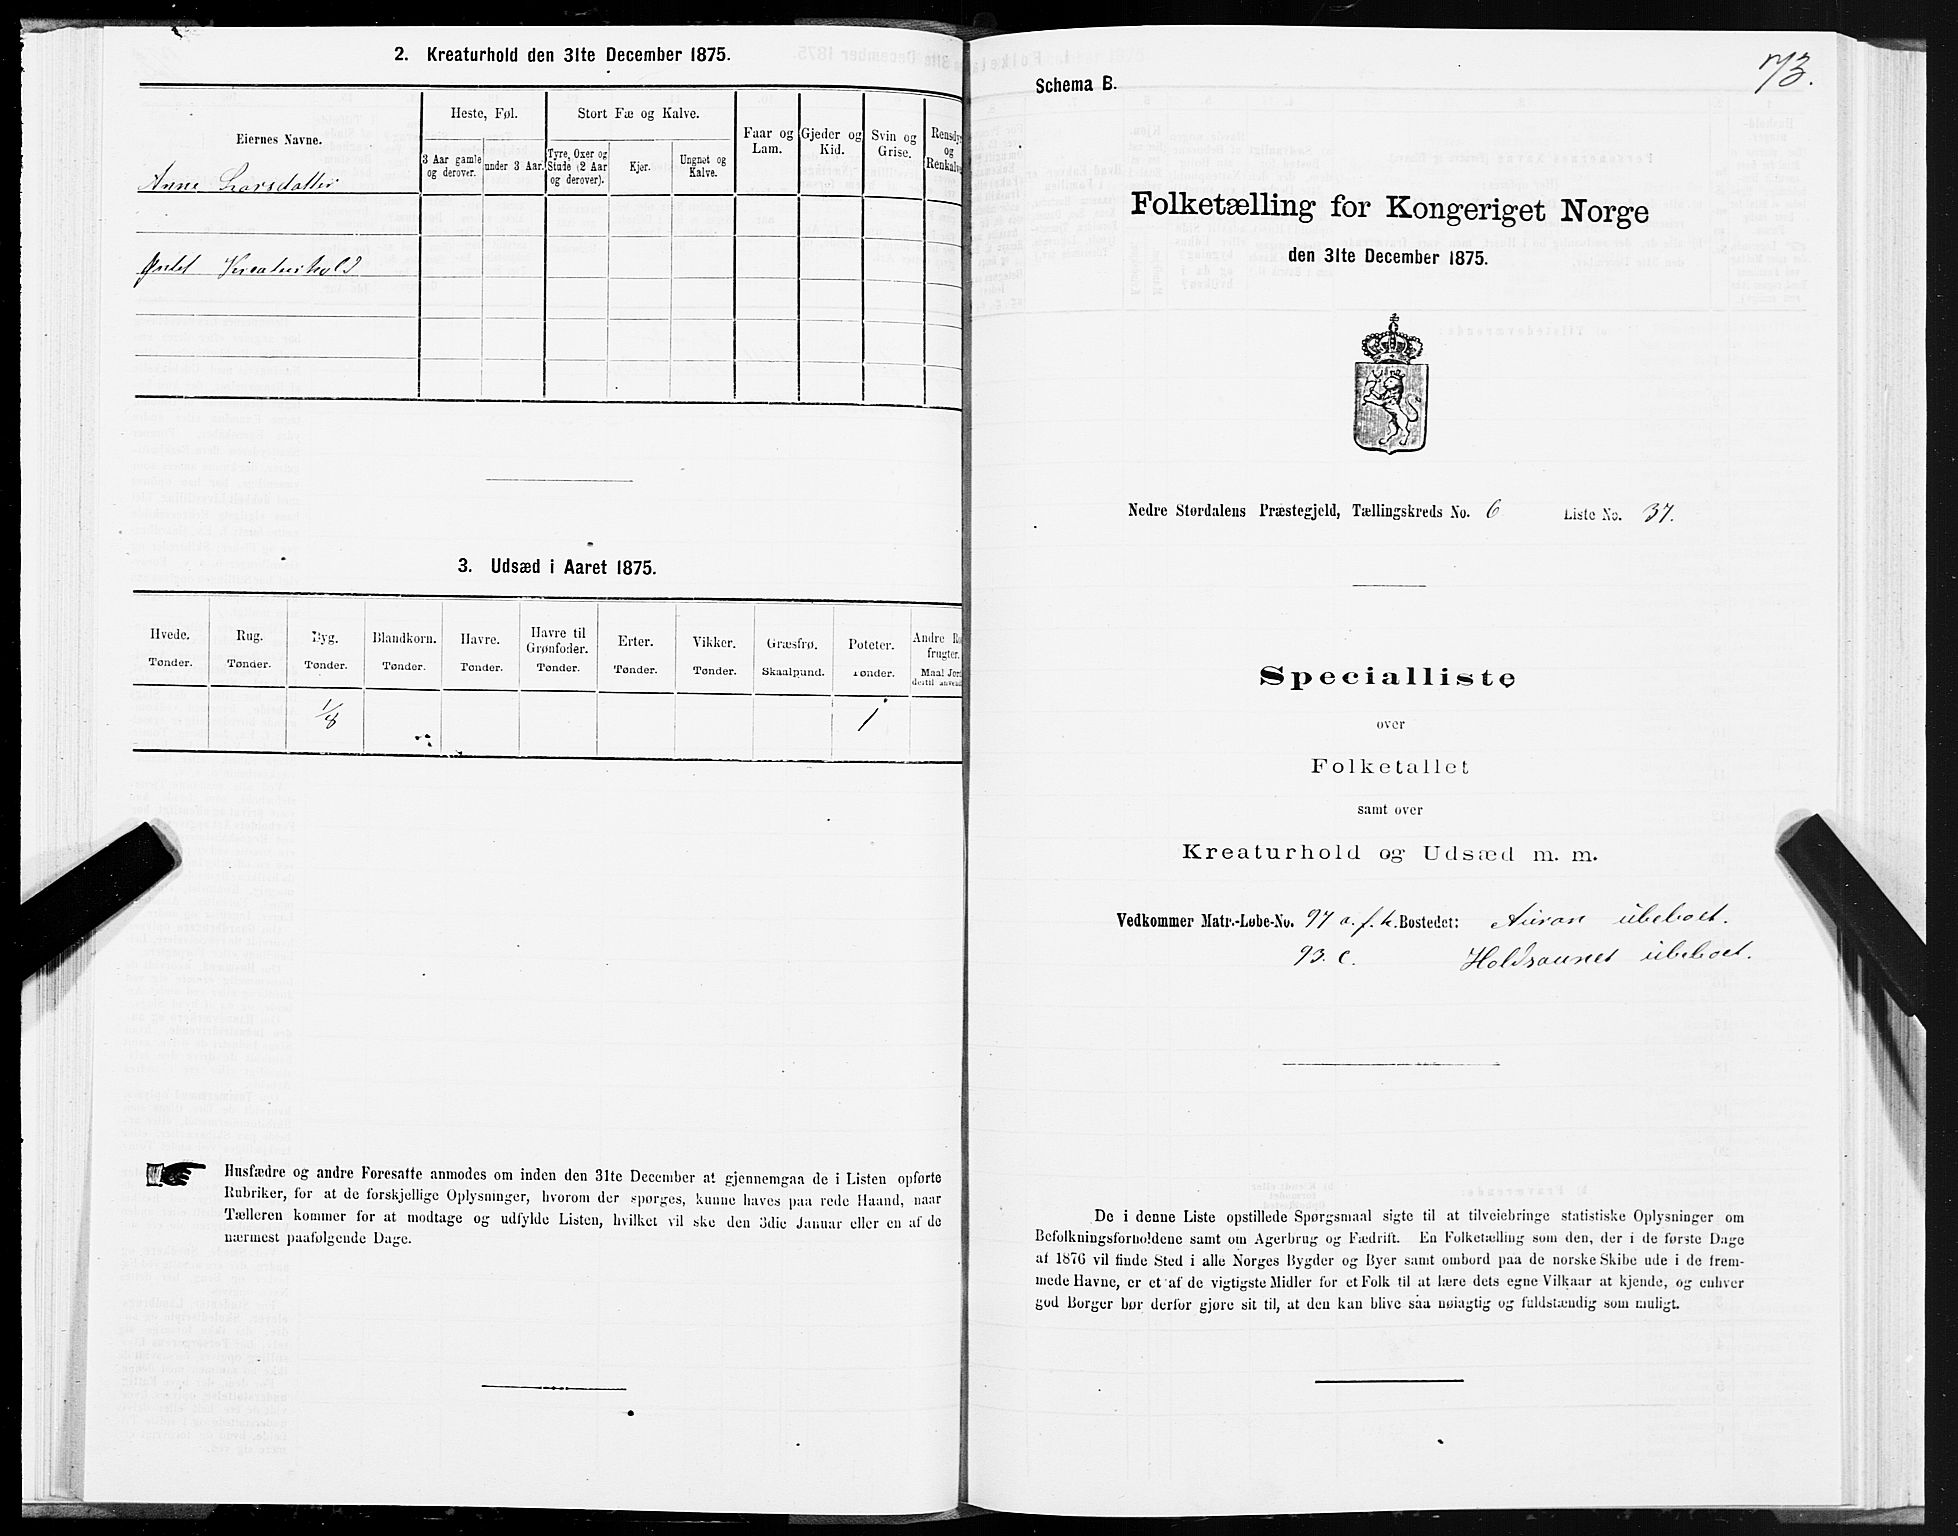 2. Kreaturhold den 31te December 1875.
Eiernes Navne.
Heste, Føl.
Stort Fæ og Kalve.
Faar og Lam.
Gjeder og Kid.
Svin og Grise.
Rensdyr og Renkalve
3 Aar gamle og derover.
under 3 Aar.
Tyre, Oxer og Stude (2 Aar og derover).
Kjer.
Ungnøt og Kalve.
Anne Larsdatter
Intet Kreaturhold
3. Udsæd i Aaret 1875.
Hvede. Rug. Byg. Blandkorn. Havre. Havre til Grønfoder. Erter. Vikker. Græsfrø. Poteter. Andre Ro frugter.
Tønder. Tønder. Tønder. Tønder. Tønder. Tønder. Tønder. Tønder. Skaalpund. Tønder. Maal Jord dertil anvend
1/8 1
Husfædre og andre Foresatte anmodes om inden den 31te December at gjennemgaa de i Listen opførte
Rubriker, for at de forskjellige Oplysninger, hvorom der spørges, kunne haves paa rede Haand, naar
Tælleren kommer for at modtage og udfylde Listen, hvilket vil ske den 3die Januar eller en af de
nærmest paafølgende Dage.
73.
Schema B.
Folketælling for Kongeriget Norge
den 31te December 1875.
Nedre Størdalens Præstegjeld, Tællingskreds No. 6 Liste No. 37.
Specialliste
over
Folketallet
samt over
Kreaturhold og Udsæd m. m.
Vedkommer Matr.-Løbe-No. 97 a. f. k. Bostedet: Auran ubeboet.
93. c. Holdsaunet ubeboet.
De i denne Liste opstillede Spørgsmaal sigte til at tilveiebringe statistiske Oplysninger om
Befolkningsforholdene samt om Agerbrug og Fædrift. En Folketælling som den, der i de første Dage
af 1876 vil finde Sted i alle Norges Bygder og Byer samt ombord paa de norske Skibe ude i de frem-
mede Havne, er et af de vigtigste Midler for et Folk til at lære dets egne Vilkaar at kjende, og enhver
god Borger bør derfor gjøre sit til, at den kan blive saa nøiagtig og fuldstændig som muligt.